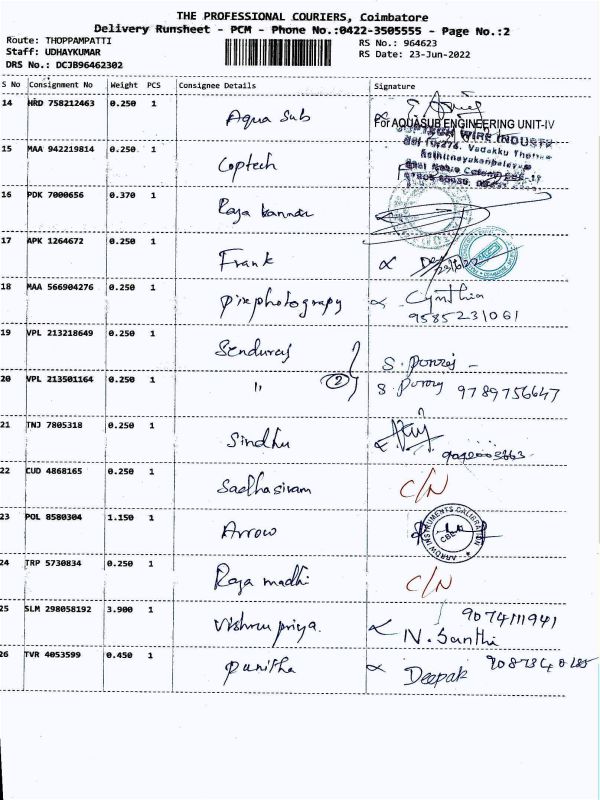 THE PROFESSIONAL COURIERS, Coimbatore
Delivery Runsheet - PCM - Phone No.:0422-3505555 - Page No.:2
Route: THOPPAMPATTI
RS No.: 964623
Staff: UDHAYKUMAR
RS Date: 23-Jun-2022
DRS No.: DCJB96462302
S No Consignment No Weight PCS Consignee Details Signature
14 HRD 758212463 0.250 1 Aqua Sub
For AQUASUB ENGINEERING UNIT-IV
15 MAA 942219814 0.250 1 Coptech
WIRE INDUSTR
Vadakku Thottam
16 PDK 7000656 0.370 1 Raja kannan
17 APK 1264672 0.250 1 Frank
23/6/22
18 MAA 566904276 0.250 1 pixphotograpy Cynthia
9585231061
19 VPL 213218649 0.250 1 Senduraj S. Ponraj
20 VPL 213501164 0.250 1 " 2 S. Ponraj 9789756647
21 TNJ 7805318 0.250 1 Sindhu
22 CUD 4868165 0.250 1 Sadhasivam C/N
23 POL 8580304 1.150 1 Arrow
ARROW INSTRUMENTS CALIBRATION
CBE
24 TRP 5730834 0.250 1 Raja madhi C/N
25 SLM 298058192 3.900 1 Vishnu priya. 9074111941
N. Santhi
26 TVR 4053599 0.450 1 punitha Deepak